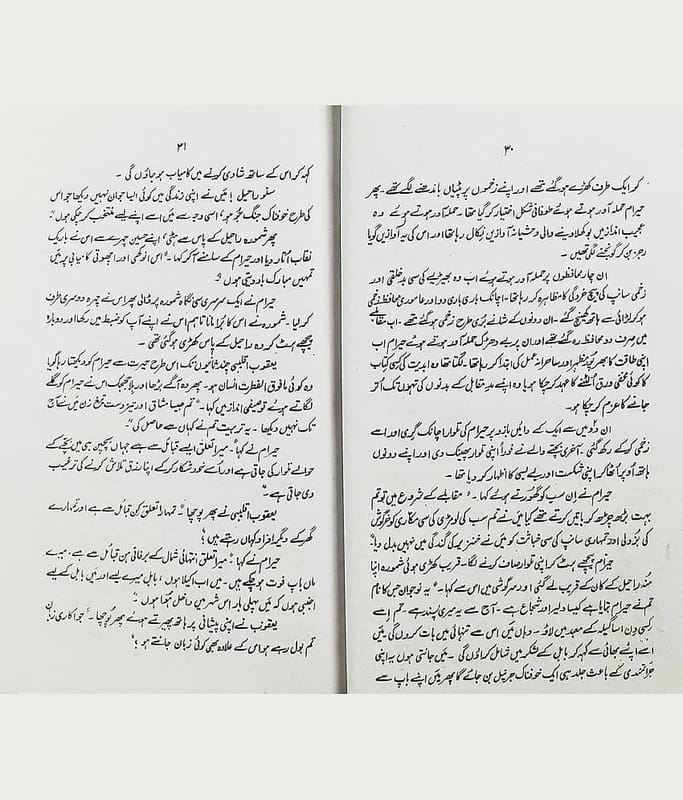 ۳۰
کو ایک طرف کھڑے ہو گئے تھے اور اپنے زخموں پر پٹیاں باندھنے لگے تھے۔ پھر
حیرام حملہ آور ہوتے ہوئے طوفانی شکل اختیار کر گیا تھا۔ حملہ آور ہوتے ہوئے وہ
عجیب انداز میں بوکھلا دینے والی وحشیانہ آوازیں نکال رہا تھا اور اس کی یہ آوازیں گویا
رجز بن کر گونجنے لگی تھیں۔
ان چار محافظوں پر حملہ آور ہوتے ہوئے اب وہ بھیڑیے کی سی بدخلقی اور
زخمی سانپ کی پیچ خوردگی کا مظاہرہ کر رہا تھا۔ اچانک باری باری دو اور عاموری محافظ زخمی
ہو کر لڑائی سے ہاتھ کھینچ گئے۔ ان دونوں کے شانے بُری طرح زخمی ہو گئے تھے۔ اب مقابلے
میں صرف دو محافظ رہ گئے تھے اور ان پر بے دھڑک حملہ آور ہوتے ہوئے حیرام اب
اپنی طاقت کا بھر پور مظہر اور ساحرانہ عمل کی ابتدا کر رہا تھا۔ لگتا تھا وہ ابدیت کی کسی کتاب
کا کوئی مخفی ورق اُلٹنے کا عہد کر چکا ہو یا وہ اپنے مدِ مقابل کے بدنوں کی تہوں تک اُتر
جانے کا عزم کر چکا ہو۔
ان دو میں سے ایک کے دائیں بازو پر حیرام کی تلوار اچانک گری اور اسے
زخمی کر کے رکھ گئی۔ آخری بچنے والے نے فوراً اپنی تلوار پھینک دی اور اپنے دونوں
ہاتھ اُوپر اُٹھا کر اپنی شکست اور بے بسی کا اظہار کر دیا تھا۔
حیرام نے ان سب کو گھورتے ہوئے کہا۔ "مقابلے کے شروع میں تو تم
بہت بڑھ چڑھ کر باتیں کرتے تھے کیا میں نے تم سب کی لومڑی کی سی مکاری کو خرگوش
کی بُزدلی اور تمہاری سانپ کی سی خباثت کو میں نے خنزیر کی گندگی میں نہیں بدل دیا"
حیرام پیچھے ہٹ کر اپنی تلوار صاف کرنے لگا۔ قریب کھڑی ہوئی شمورہ اپنا
منہ راحیل کے کان کے قریب لے گئی اور سرگوشی میں اس سے کہا۔ "یہ نوجوان جس کا نام
تم نے حیرام بتایا ہے کیسا دلیر اور شجاع ہے۔ آج سے یہ میری پسند ہے۔ تم اسے
کسی دن اساگیلہ کے معبد میں لاؤ۔ وہاں میں اس سے تنہائی میں بات کروں گی۔ میں
اسے اپنے بھائی سے کہہ کر بابل کے لشکر میں شامل کراؤں گی۔ میں جانتی ہوں یہ اپنی
جرأتمندی کے باعث جلد ہی ایک خوفناک جرنیل بن جائے گا پھر میں اپنے باپ سے
۳۱
کہہ کر اس کے ساتھ شادی کرنے میں کامیاب ہو جاؤں گی۔
سنو راحیل! میں نے اپنی زندگی میں کوئی ایسا جوان نہیں دیکھا جو اس
کی طرح خوفناک جنگ جُو ہو، اسی وجہ سے میں اسے اپنے لیے منتخب کر چکی ہوں"
پھر شمورہ راحیل کے پاس سے ہٹی، اپنے حسین چہرے سے اس نے باریک
نقاب اُتار دیا اور حیرام کے سامنے آ کر کہا۔ "اس انوکھی اور اچھوتی کامیابی پر میں
تمہیں مبارک باد دیتی ہوں"
حیرام نے ایک سرسری سی نگاہ شمورہ پر ڈالی پھر اس نے چہرہ دوسری طرف
کر لیا۔ شمورہ نے اس کا بُرا مانا تاہم اس نے اپنے آپ کو ضبط میں رکھا اور دوبارہ
پیچھے ہٹ کر وہ راحیل کے پاس کھڑی ہو گئی تھی۔
یعقوب اقلیبی چند ثانیوں تک اس طرح حیرت سے حیرام کو دیکھتا رہا گویا
وہ کوئی مافوق الفطرت انسان ہو۔ پھر وہ آگے بڑھا اور بلا جھجک اس نے حیرام کو گلے
لگاتے ہوئے توصیفی انداز میں کہا۔ "تم جیسا مشاق اور تیز دست تیغ زن میں نے آج
تک نہیں دیکھا۔ یہ تربیت تم نے کہاں سے حاصل کی"
حیرام نے کہا۔ "میرا تعلق ایسے قبائل سے ہے جہاں بچپن ہی میں بچے کے
حوالے تلوار کی جاتی ہے اور اُسے خود شکار کر کے اپنا رزق تلاش کرنے کی ترغیب
دی جاتی ہے۔"
یعقوب اقلیبی نے پھر پوچھا۔ "تمہارا تعلق کن قبائل سے ہے اور تمہارے
گھر کے دیگر افراد کہاں رہتے ہیں؟"
حیرام نے کہا۔ "میرا تعلق انتہائی شمال کے برفانی من قبائل سے ہے۔ میرے
ماں باپ فوت ہو چکے ہیں۔ میں اب اکیلا ہوں، بابل میرے لیے اور میں بابل کے لیے
اجنبی ہوں کہ میں پہلی بار اس شہر میں داخل ہُوا ہوں۔"
یعقوب نے اپنی پیشانی پر ہاتھ پھیرتے ہوئے پھر پُوچھا۔ "جو اکادی زبان
تم بول رہے ہو اس کے علاوہ بھی کوئی زبان جانتے ہو؟"